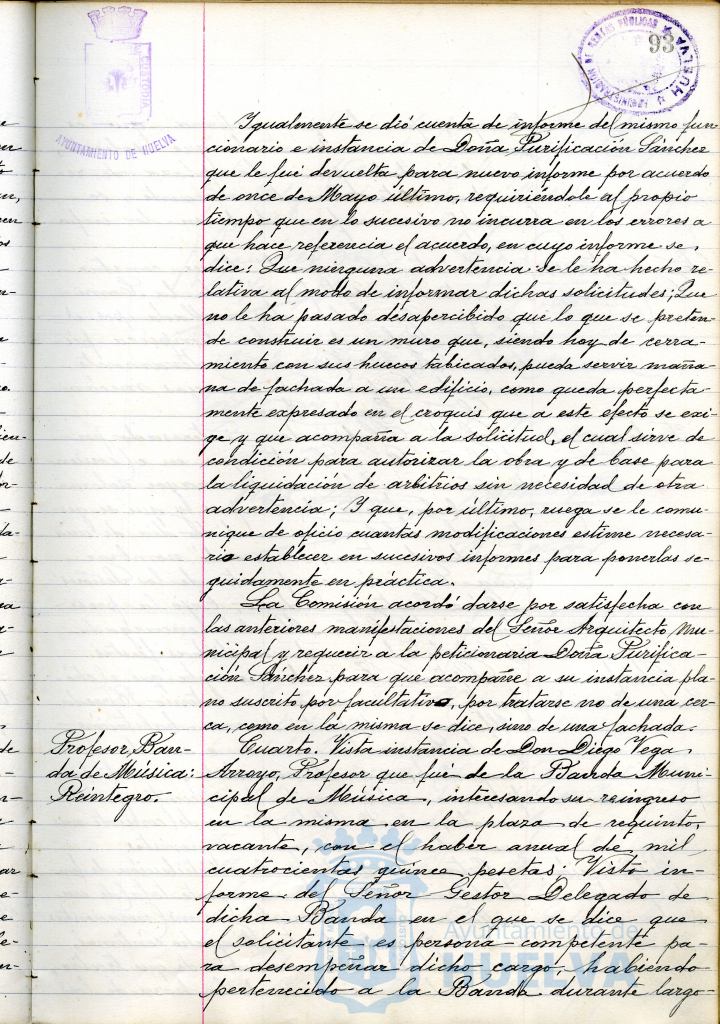 93
CUSTODIA
AYUNTAMIENTO DE HUELVA
ADMINISTRACION DE RENTAS PUBLICAS
HUELVA
Igualmente se dió cuenta de informe del mismo fun-
cionario e instancia de Doña Purificación Sánchez
que le fué devuelta para nuevo informe por acuerdo
de once de Mayo último, requiriéndole al propio
tiempo que en lo sucesivo no incurra en los errores a
que hace referencia el acuerdo, en cuyo informe se
dice: Que ninguna advertencia se le ha hecho re-
lativa al modo de informar dichas solicitudes; Que
no le ha pasado desapercibido que lo que se preten-
de construir es un muro que, siendo hoy de cerra-
miento con sus huecos tabicados, pueda servir maña-
na de fachada a un edificio, como queda perfecta-
mente expresado en el croquis que a este efecto se exi-
ge y que acompaña a la solicitud, el cual sirve de
condición para autorizar la obra y de base para
la liquidación de arbitrios sin necesidad de otra
advertencia; Y que, por último, ruega se le comu-
nique de oficio cuantas modificaciones estime necesa-
rio establecer en sucesivos informes para ponerlas se-
guidamente en práctica.
La Comisión acordó darse por satisfecha con
las anteriores manifestaciones del Señor Arquitecto Mu-
nicipal y requerir a la peticionaria Doña Purifica-
ción Sánchez para que acompañe a su instancia pla-
no suscrito por facultativo, por tratarse no de una cer-
ca, como en la misma se dice, sino de una fachada.
Profesor Ban-
da de Música:
Reintegro.
Cuarto. Vista instancia de Don Diego Vega
Arroyo, Profesor que fué de la Banda Muni-
cipal de Música, interesando su reingreso
en la misma en la plaza de requinto,
vacante, con el haber anual de mil
cuatrocientas quince pesetas: Visto in-
forme del Señor Gestor Delegado de
dicha Banda en el que se dice que
el solicitante es persona competente pa-
ra desempeñar dicho cargo, habiendo
pertenecido a la Banda durante largo-
Ayuntamiento de
HUELVA